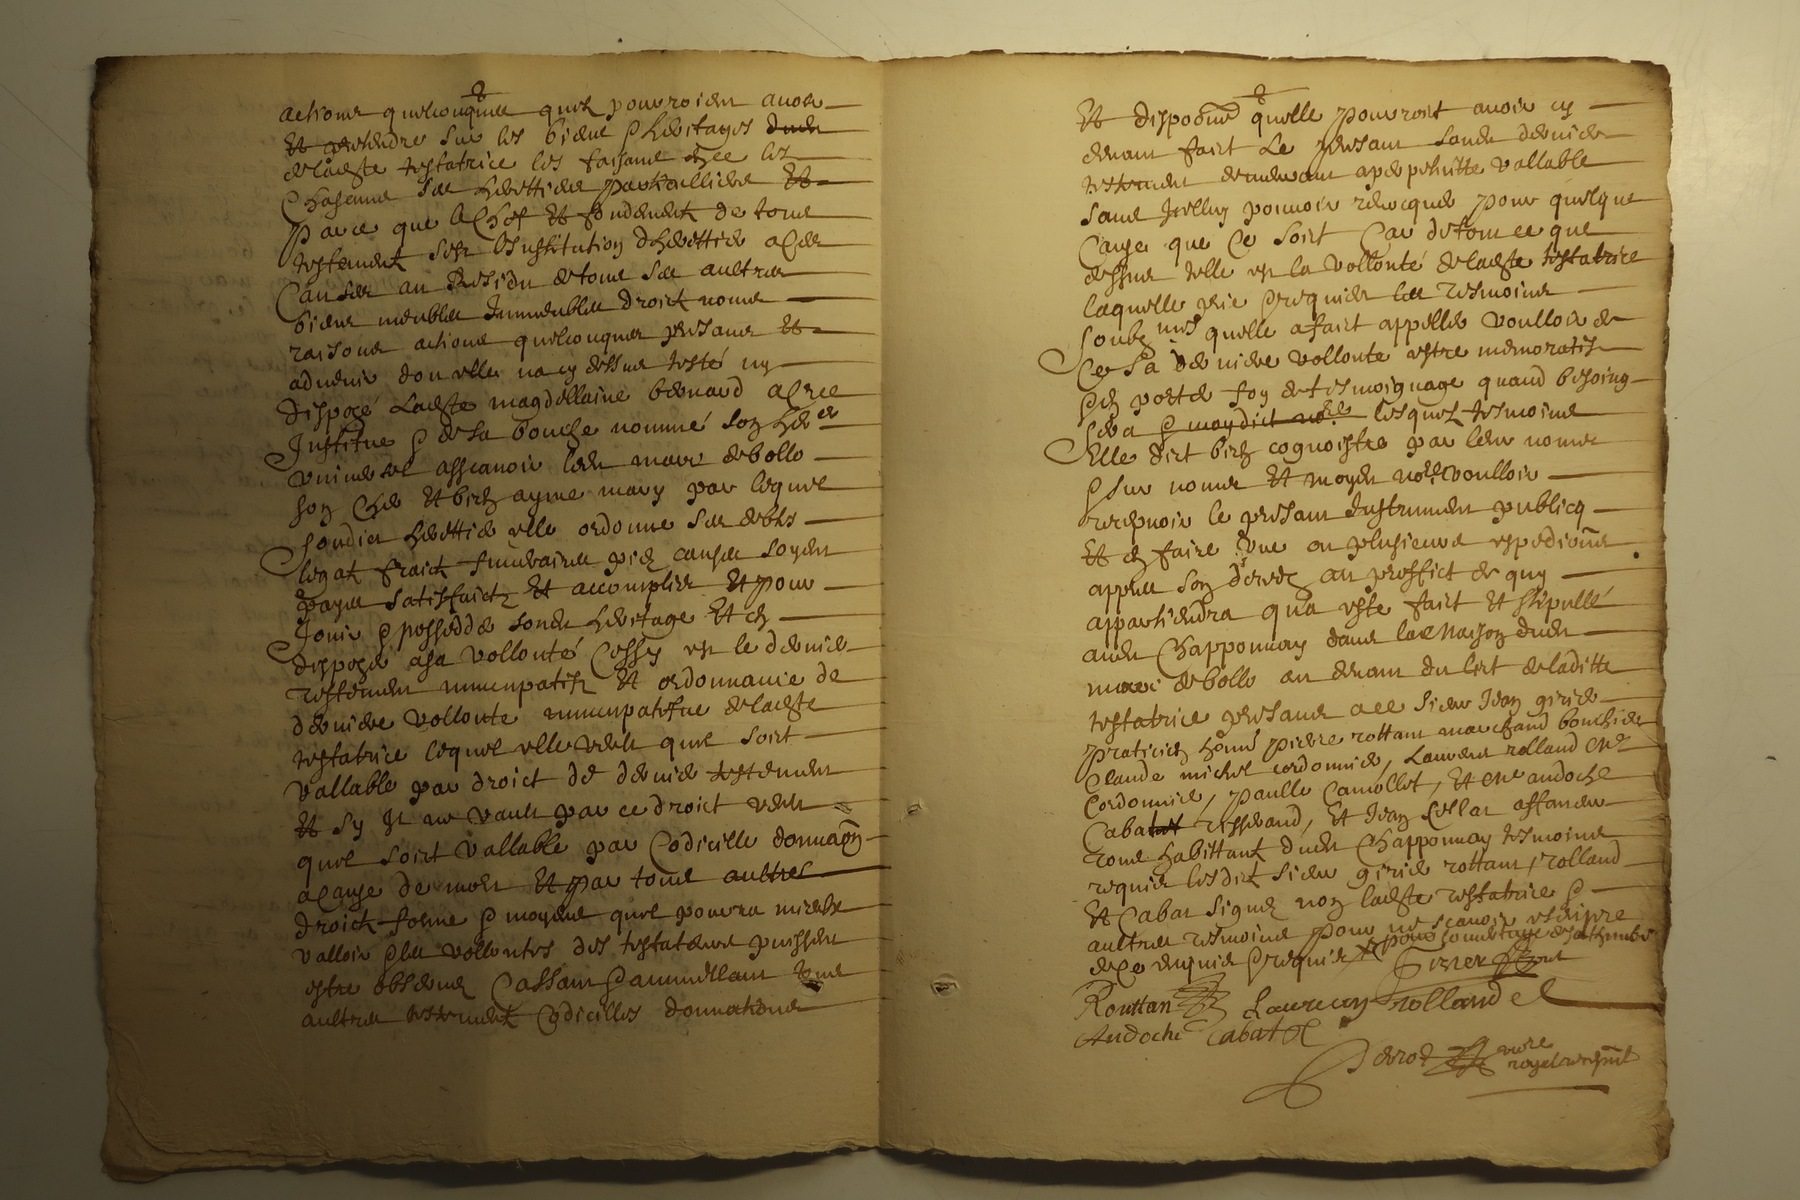 actions quelconques quils pourroient avoir
Et pretendre sur les biens & heritages dudit
de ladite testatrice les faisant avec les
Chascune ses herittiers particulliers Et
Parce que le Chef Et fondement de tous
testement est l'institution dherittier a ceste
Cause au Residu de tous ses aultres
biens meubles Immeubles droictz noms
raisons actions quelconques presans Et
advenir dont elle na cy dessus testé ny
disposé Ladite magdellaine bernard a cree
Institue & de sa bouche nommé son her
universel assavoir ledit marc debollo
son cher Et bien ayme mary par lequel
sondict herittier elle ordonne ses debtes
legatz fraictz funeraires pies causes soyent
payes satisfaictz Et accomplies Et pour
Jouir & possedder sondit heritage Et en
disposer a sa vollonté Cessy est le dernier
testement nuncupatif Et ordonnance de
derniere vollonte nuncupatifue de ladite
testatrice lequel elle veult quil soit
vallable par droict de dernier testement
Et sy Il ne vault par ce droict veult
quil soict vallable par Codicille donnaon
a cause de mort Et par tous aultres
droictz forme & moyens quil pourra mieulx
valloir & les vollontes des testateurs puissent
estre observes Cassant & annullant tous
aultres testementz Codicilles donnations
Et disposions quelle pourroit avoir cy
devant faict Le presant sondit dernier
testement demeurant a perpetuitte vallable
sans Icelluy pouvoir revocquer pour quelque
Cause que ce soict Car de tout ce que
dessus telle est la vollonté de ladite testatrice
laquelle prie & requier les tesmoins
soubz nes quelle a faict appeller voulloir de
Ce sa derniere vollonte estre memoratif
& en porter foy & tesmoignage quand besoing
sera & moydict nore lesquelz tesmoins
Elle dict bien cognoistre par leur noms
& sur noms Et moyer nore voulloir
recepvoir le presant Instrument publicq
Et en faire une ou plusieurs expedions
appres son deces au proffict de quy
appartiendra qua este faict Et stipullé
audit Chapponnay dans la Maison dudit
marc debollo au devant du lict de laditte
testatrice presans ace sieur Jean girier
praticien honn pierre rottant marchand bouchier
Claude michel cordonnier, Laurent rolland me
Cordonnier, paulle Camollet, Et me andoche
Cabat tisserand, Et Jean Collat affaneur
tous habittantz dudit Chapponnay tesmoins
requis lesdict sieur girier rottant, rolland
Et Cabat signez non ladite testatrice &
aultres tesmoins pour ne scavoir escripre
de ce enquis & requis
Girier
Routtan Laurent rolland
Andoche Cabat
nore
royal